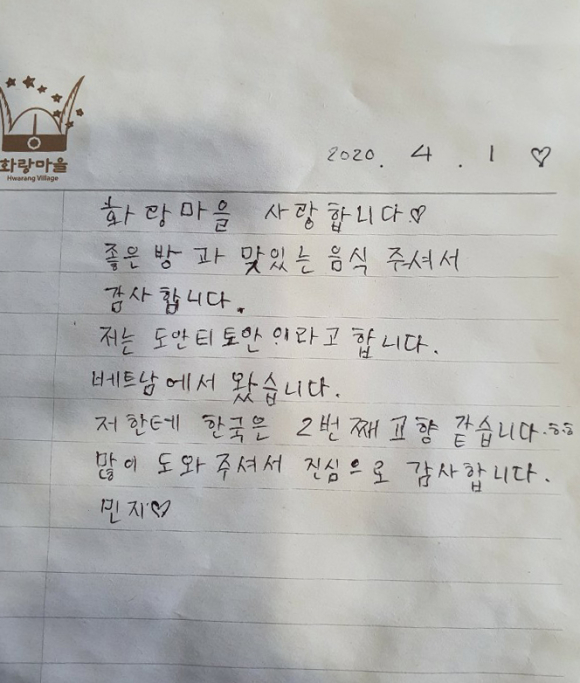 화랑마을
Hwarang Village
2020. 4. 1 ♡
화랑마을 사랑합니다♡
좋은 방과 맟있는 음식 주셔서
감사합니다.
저는 도안티토안이라고 합니다.
베트남에서 왔습니다.
저한테 한국은 2번째 고향 같습니다.ㅎㅎ
많이 도와주셔서 진심으로 감사합니다.
민지♡